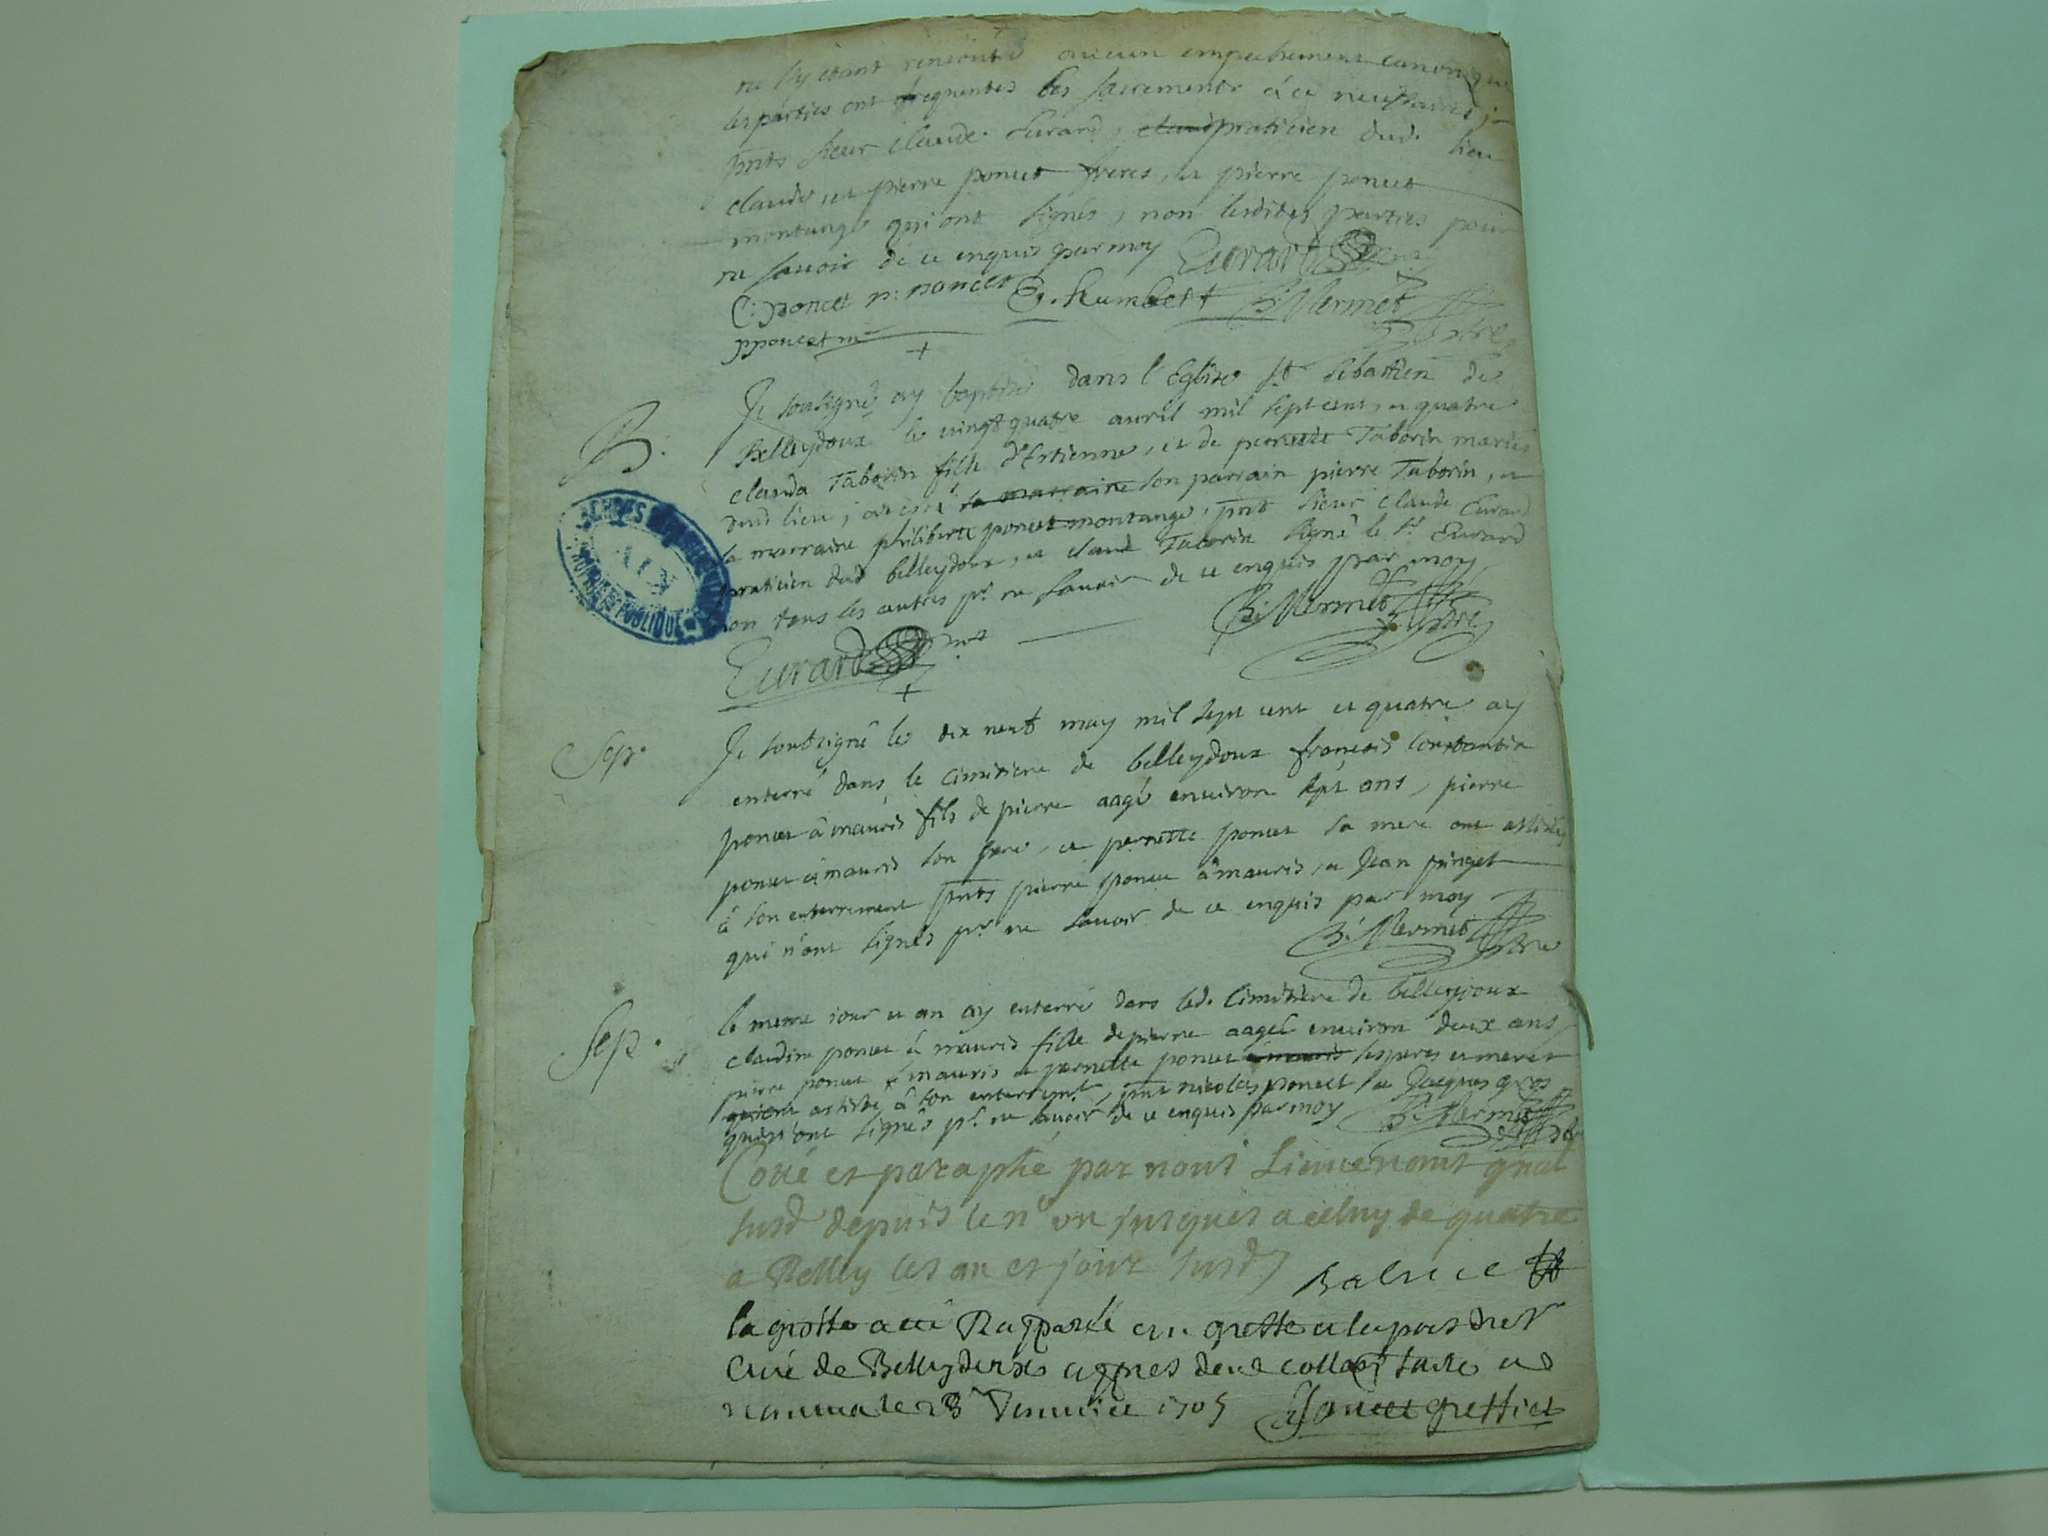 ne s'y étant rencontré aucun empechement canonique
les parties ont frequentés les sacrements à ce necessaires ;
pnts sieur claude Eurard, praticien dud. lieu
claude, et pierre poncet freres, et pierre poncet
montange qui ont signés, non lesdites parties pour
ne savoir de ce enquis par moy Eurard
C: poncet p: poncet Humbert B: Mermet
p poncet m ptre
B: Je soussigné ay baptisé dans l'Eglise St Sebastien de
Belleydoux le vingt quatre avril mil sept cent, et quatre
clauda Taborin fille d'Estienne, et de pernette Taborin mariés
dud lieu, a esté la marraine son parrain pierre Taborin, et
la marraine philiberte poncet montange, pnt sieur claude Eurard
praticien dud belleydoux, et claude Taborin signé le Sr. Eurard
non tous les autres pr. ne savoir de ce enquis par moy
Eurard B: Mermet ptre
Sep. Je soubsigné le dix neuf may mil sept cent et quatre ay
enterré dans le cimitiere de belleydoux françois constantin
poncet à mauris fils de pierre aagé environ sept ans, pierre
poncet à mauris son pere, et pernette poncet sa mere ont assistés
à son enterrement pnts pierre poncet à mauris, et Jean
qui n'ont signés pr. ne savoir de ce enquis par moy
B: Mermet ptre
Sep. le meme jour et an ay enterré dans led. Cimitiere de belleydoux
claudine poncet à mauris fille de pierre aagée environ deux ans,
pierre poncet à mauris et pernette poncet à mauris ses peres et meres
qui ont assisté à son enterremt., pnt nicolas poncet et Jacques gros
qui n'ont signés pr. ne savoir de ce enquis par moy B: Mermet ptre
Coté et paraphé par nous Lieutenant gnal
susd depuis le n° un jusques a celuy de quatre
a Belley les an et jour susd
la grosse a été Rapporté au greffe
Curé de Belleydoux appres
1705 greffier
ARCHIVES DEPARTEMENTALES
AIN
PROPRIETE PUBLIQUE